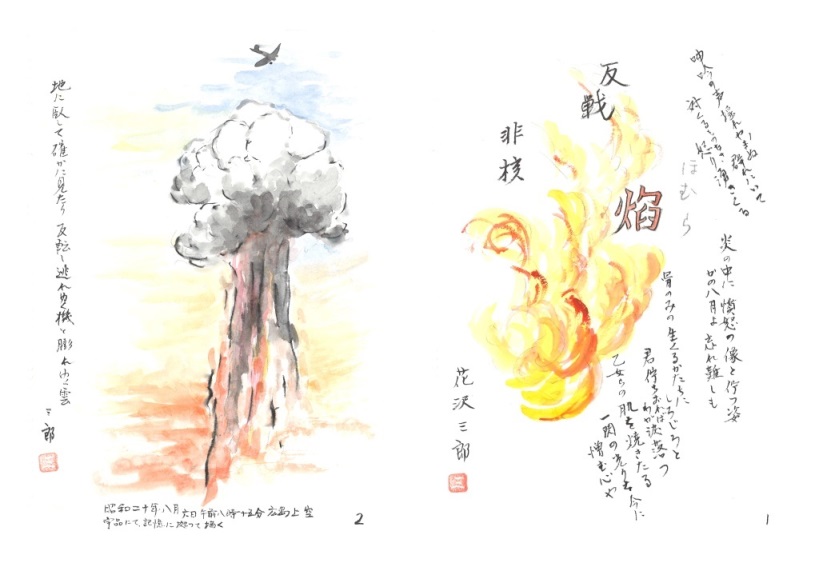 反戦
非核
焔
ほむら
呻吟の声 やまぬ 群れにいて
怒り湧きくる
炎の中に憤怒の像と佇つ姿
かの八月よ忘れ難しも
骨のみの生くるかたちにしろじろと
君待ちおればわが涙落つ
乙女らの肌を焼きたる
一閃の光りを今に
憎む心や
花沢三郎
1
地に臥して確かに見たり 反転し逃れゆく機と膨れゆく雲
三郎
昭和二十年八月六日午前八時十五分広島上空
宇品にて、記憶に拠って描く
2